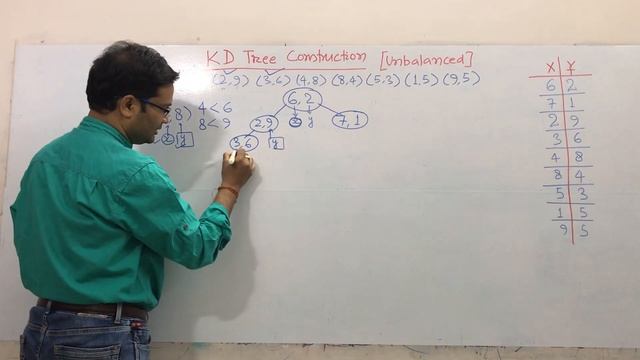 KD Tree Construction [Unbalanced]
(2,9) (3,6) (4,8) (8,4) (5,3) (1,5) (9,5)
,8) 4<6
x y 8<9
6,2
x y
2,9
7,1
3,6
y
X Y
6 2
7 1
2 9
3 6
4 8
8 4
5 3
1 5
9 5